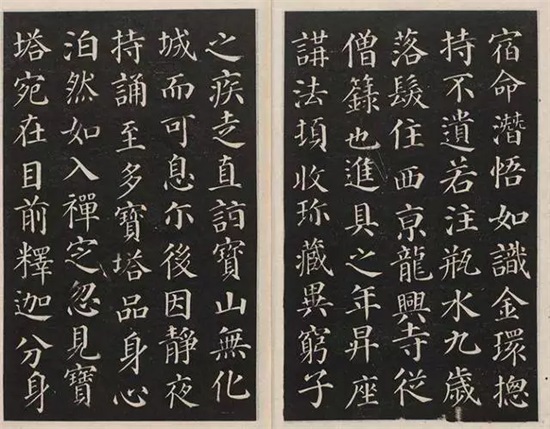 宿命潛悟如識金環揔
持不遺若注瓶水九歲
落髮住西亰龍興寺從
僧籙也進具之年昇座
講法頃收珎藏異窮子
之疾走直詣寶山無化
城而可息尒後因靜夜
持誦至多寶塔品身心
泊然如入禪定忽見寶
塔宛在目前釋迦分身